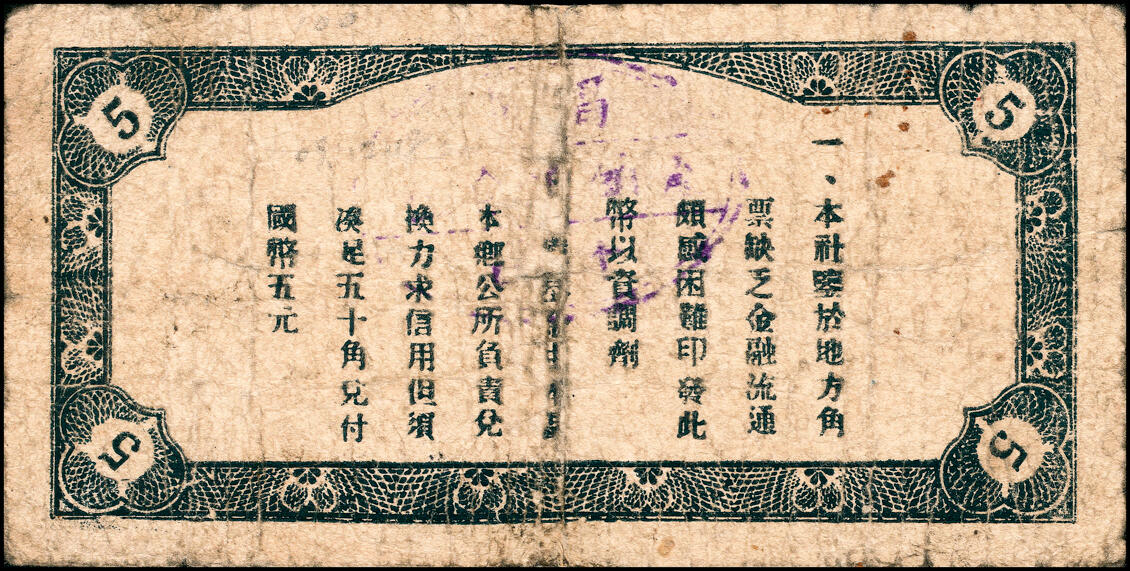 5
5
一、本社鑒於地方角
票缺乏金融流通
頗感困難印發此
幣以資調劑
本鄉公所負責兌
換力求信用但須
湊足五十角兌付
國幣五元
5
5